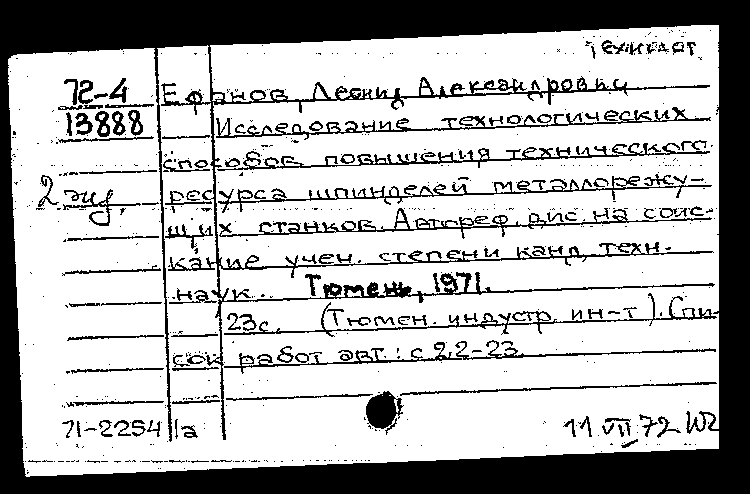 72-4 Ефанов, Леонид Александрович
13888 Исследование технологических
способов повышения технического
2 экз. ресурса шпинделей металлорежу-
щих станков. Автореф. дис. на соис-
кание учен. степени канд. техн.
наук. Тюмень, 1971.
23с. (Тюмен. индустр. ин-т). Спи-
сок работ авт.: с 22-23.
71-2254 1а
11 VII 72